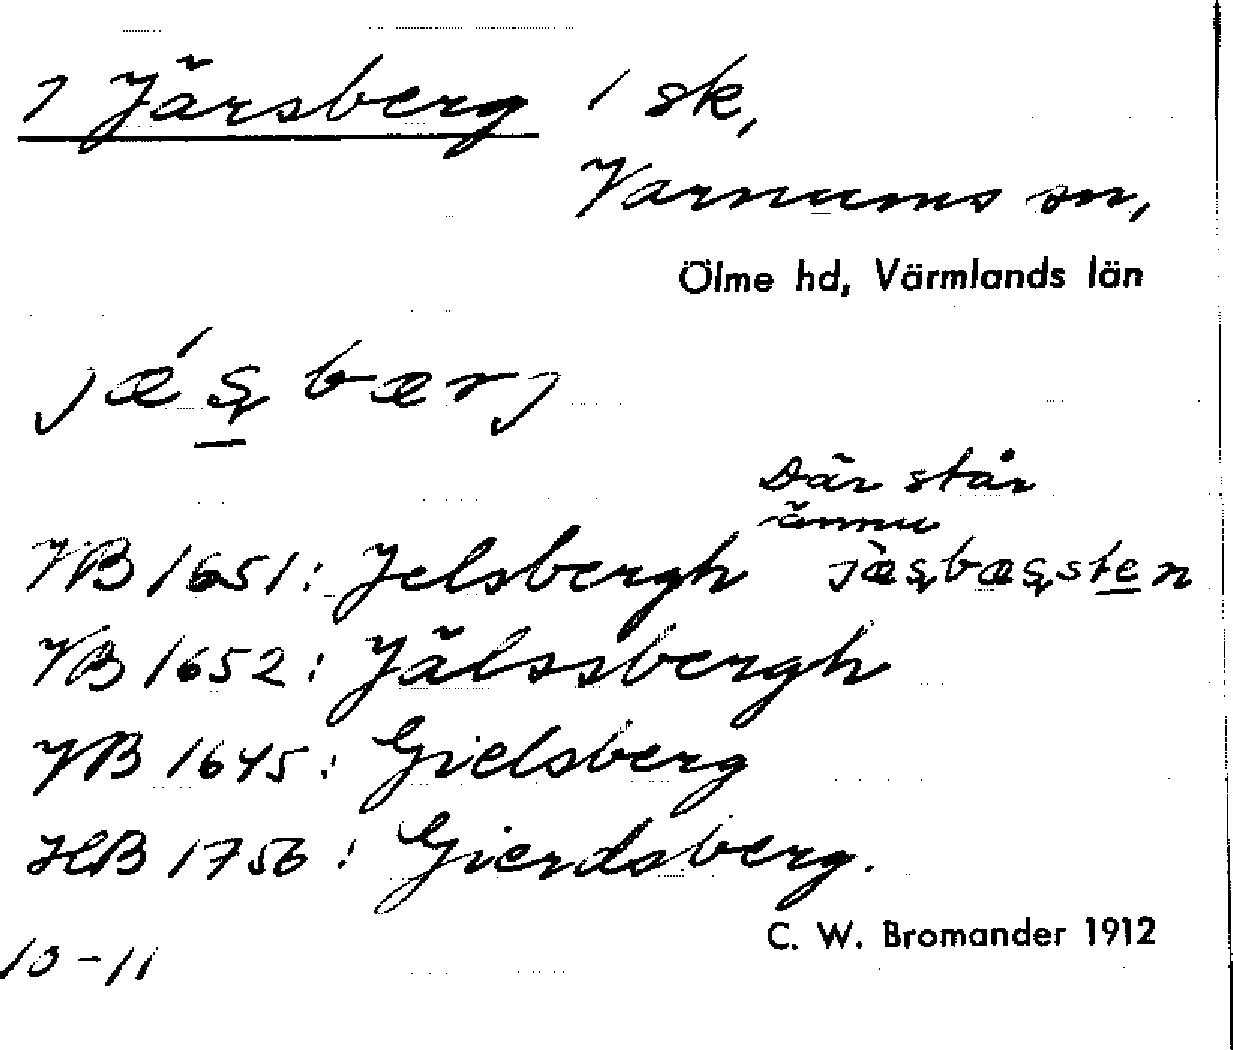 1 Järsberg 1 sk,
Varnums sn,
Ölme hd, Värmlands län
jǽʂbærj
Där står
ännu
VB 1651: Jelsbergh jæ̀ʂbæʂsten
VB 1652: Jälssbergh
JB 1645: Gielsberg
HB 1756: Gierdsberg.
C. W. Bromander 1912
10-11